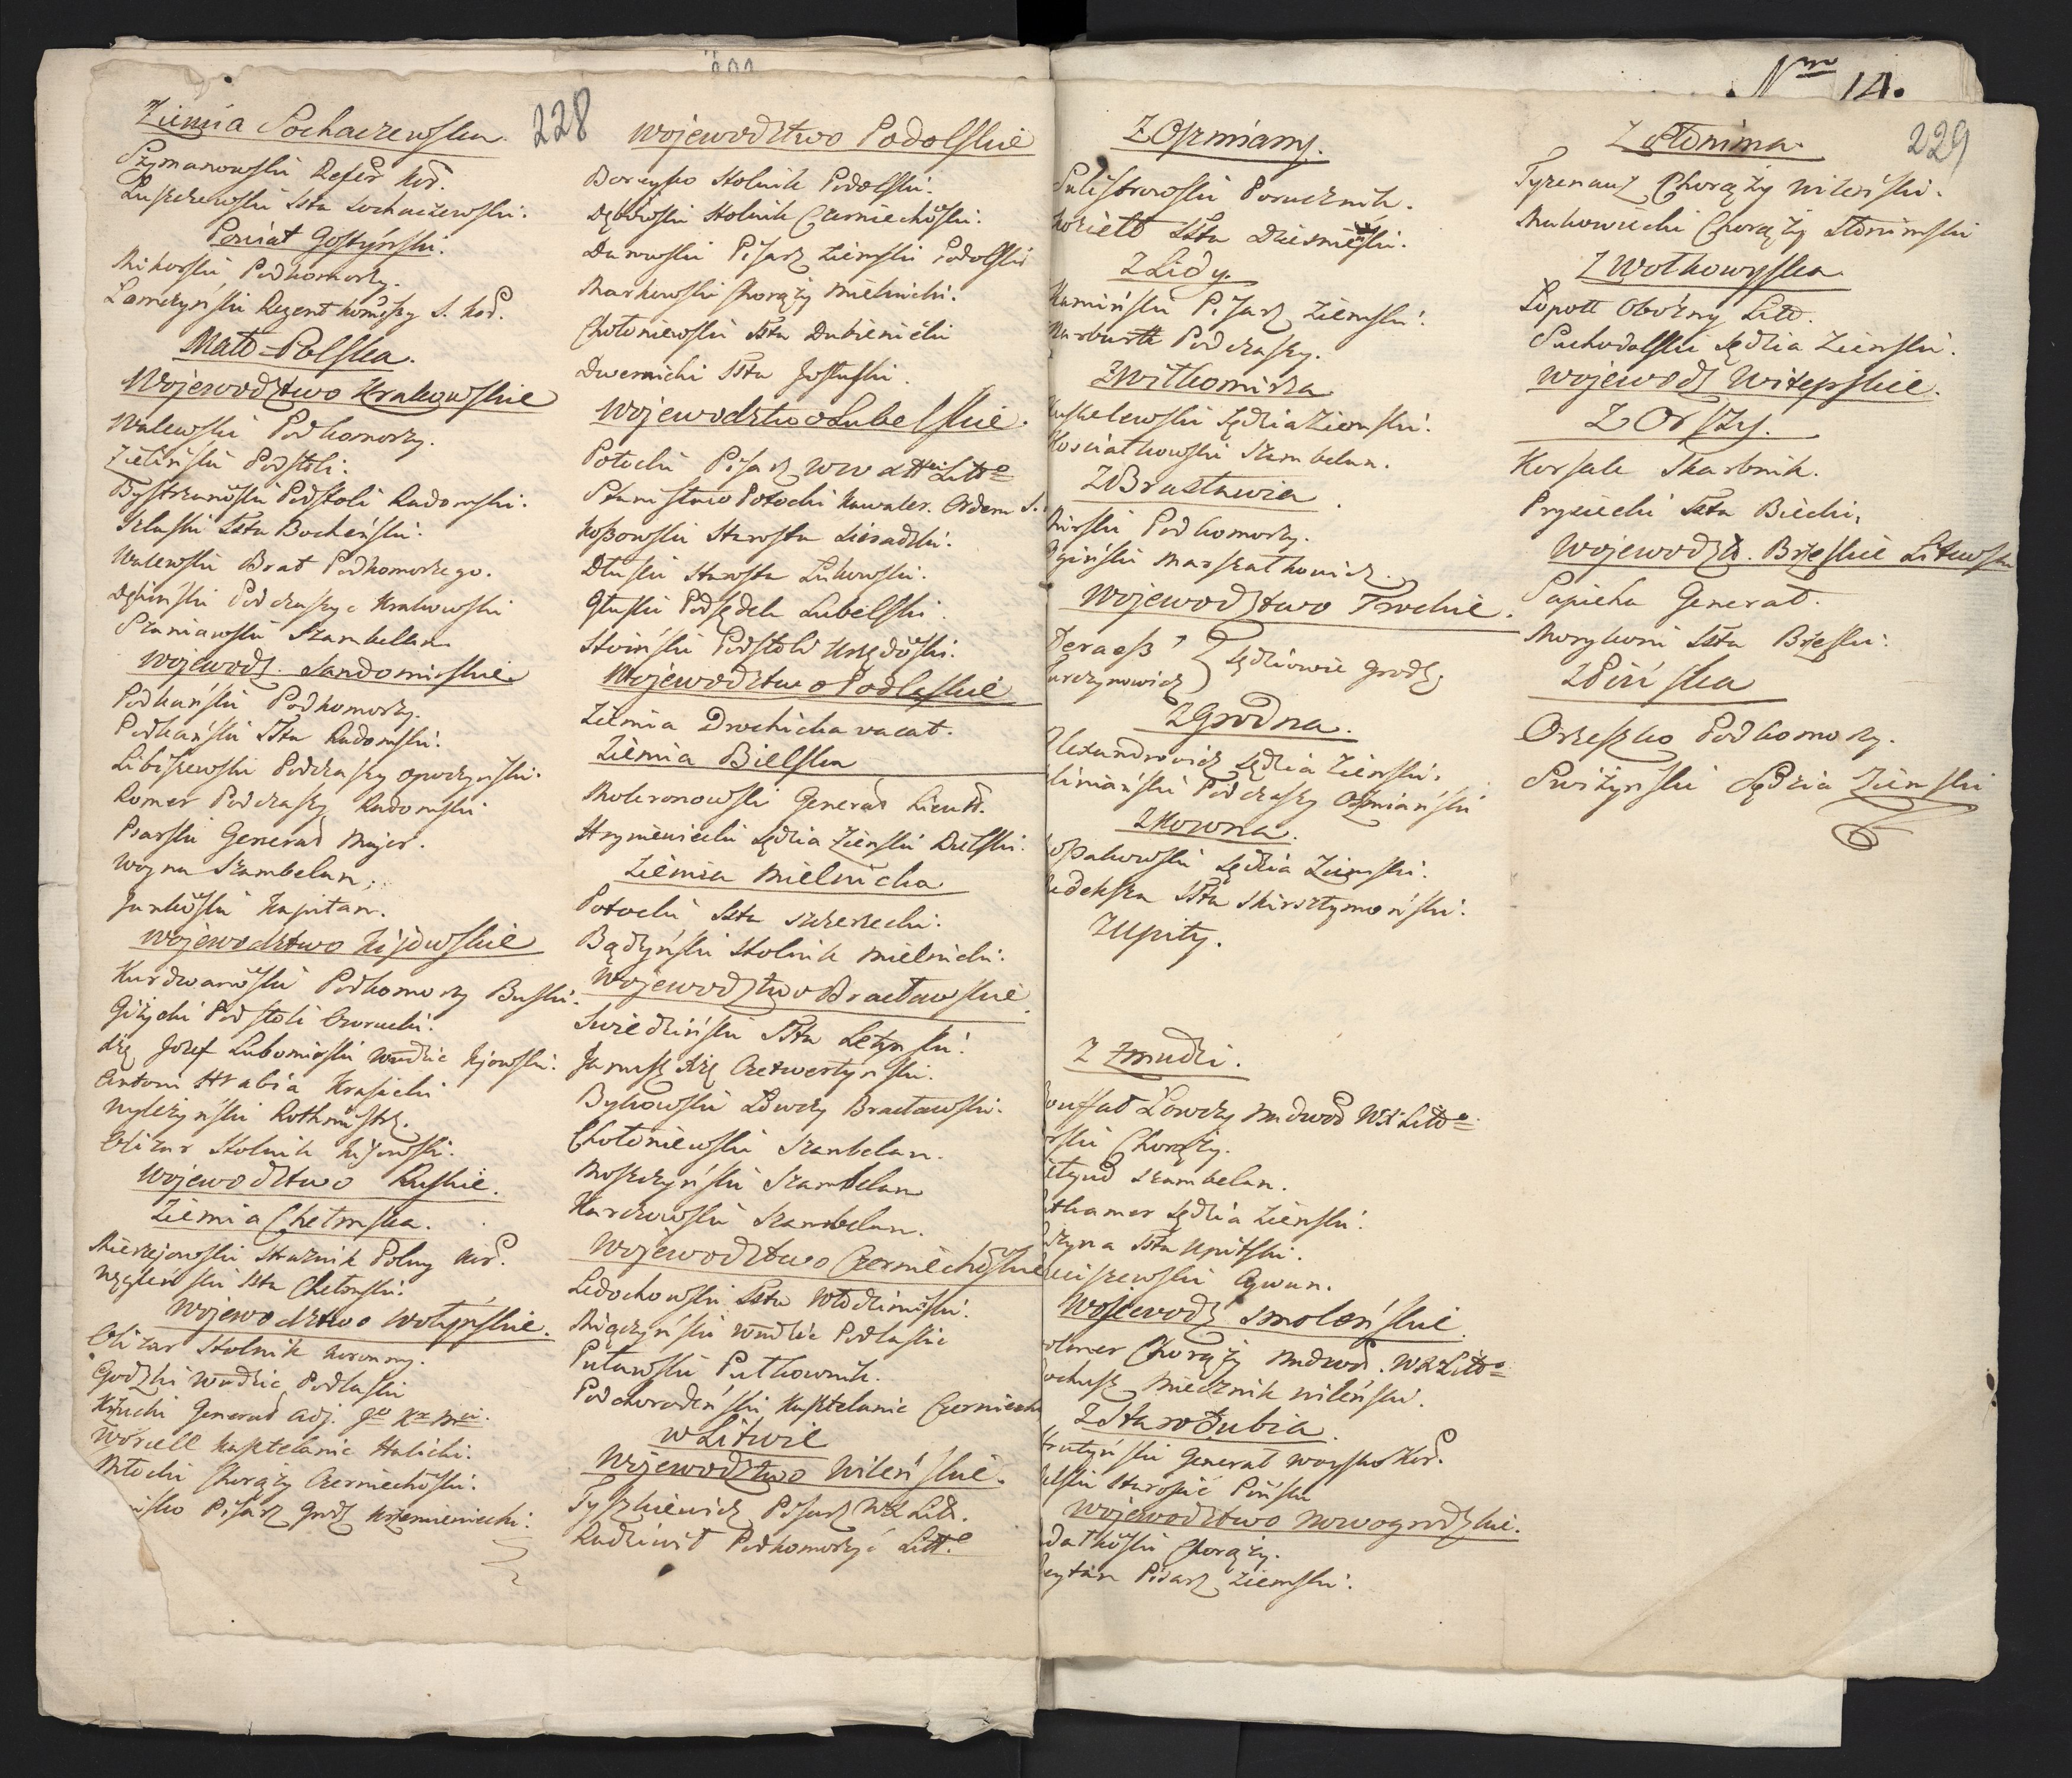 228
Ziemia Sochaczewska.
Szymanowski Refer. Kor.
Łuszczewski Stta Sochaczewski.
Powiat Gostyński.
Mikorski Podkomorzy.
Lamczyński Regent Komissy S. Kor.
Mało-Polska.
Wojewodztwo Krakowskie
Walewski Podkomorzy.
Zieliński Podstoli.
Bystrzanowski Podstoli Radomski.
Stta Bocheński.
Walewski Brat Podkomorzego.
Podczaszyc Krakowski
Szaniawski Szambellan
Wojewodz. Sandomirskie.
Podkański Podkomorzy.
Podkański Stta Radomski.
Libiszewski Podczaszy Opoczyński.
Romer Podczaszy Radomski
Psarski Generał Major.
Woyna Szambelan.
Junkowski Kapitan.
Wojewodztwo Kijowskie
Kurdwanowski Podkomorzy Buski.
Giżycki Podstoli Owrucki.
Xże Jozef Lubomirski Wwdzic Kijowski.
Antoni Hrabia Krasicki
Wyleżyński Rothmistrz.
Olizar Stolnik Kijowski.
Wojewodztwo Ruskie.
Ziemia Chełmska.
Mierzejewski Strażnik Polny Kor.
Węgleński Stta Chełmski.
Wojewodztwo Wołyńskie.
Olizar Stolnik Koronny.
Godzki Wwdzic Podlaski
Generał Adj. Jgo Kr Mci.
Worcell Kasztelanic Halicki.
Młocki Chorąży Czerniechowski.
Pisarz Grodz Krzemieniecki.
Wojewodztwo Podolskie
Borejko Stolnik Podolski.
Dębowski Stolnik Czerniechowski.
Dunowski Pisarz Ziemski Podolski
Markowski Chorąży Mielnicki.
Chołoniewski Stta Dubieniecki
Dwernicki Stta
Wojewodztwo Lubelskie.
Potocki Pisarz WW Litto
Stanisław Potocki Kawaler. Orderu S.
Kossowski Starosta Sieradzki.
Dłuski Starosta Łukowski.
Głuski Podsędek Lubelski.
Stoiński Podstoli Urzędowski.
Wojewodztwo Podlaskie
Ziemia Drochicka vacat.
Ziemia Bielska
Mokronowski Generał Lieutt.
Hryniewiecki Sędzia Ziemski Bielski.
Ziemia Mielnicka
Potocki Stta Szczerzecki.
Bądzyński Stolnik Mielnicki.
Wojewodztwo Bracławskie.
Swiedziński Stta Letyński.
Janusz Xże Czetwertynski.
Bykowski Łowczy Bracławski.
Chołoniewski Szambelan.
Moszczyński Szambelan
Karczowski Szambelan.
Wojewodztwo Czerniechowskie
Ledochowski Stta Włodzimirski.
Miączyński Wwdzic Podlaski
Puławski Pułkownik.
Podhorodeński Kasztelanic Czerniecho
w Litwie
Wojewodztwo Wileńskie.
Tyszkiewicz Pisarz WX Litt.
Radziwił Podkomorzy Litt.
Nro 14.
229
Z Oszmiany.
Sulistrowski Porucznik.
Koziełł Stta Dziesnieński.
Z Lidy.
Kamiński Pisarz Ziemski.
Narbutt Podczaszy.
Z Wiłkomirza
Kuszelewski Sędzia Ziemski.
Kościałkowski Szambelan.
Z Brasławia
Mirski Podkomorzy.
giński Marszałkowicz.
Wojewodztwo Trockie.
Deraeß
Jurczynowicz } Sędziowie Grodz.
Z Grodna.
Alexandrowicz Sędzia Ziemski.
limański Podczaszy Oszmiański
Z Kowna.
Sędzia Ziemski.
Stta Skirsztymoński.
Z Upity.
Z Żmudzi.
ouffał Łowczy Nadwor WX Litto
rski Chorąży.
Szambelan.
thamer Sędzia Ziemski.
Stta Upitski.
iszewski Cywun.
Wojewodz Smoleńskie
olmer Chorąży Nadwor. WX Litto
ochusz Miecznik Wileński.
Z Starodubia.
Generał Woysk Kor.
elski Starościc Piński
Wojewodztwo Nowogrodzkie.
Chorąży.
eytan Pisarz Ziemski.
Z Słonima.
Tyzenauz Chorąży Wileński.
Makowiecki Chorąży Słonimski
Z Wołkowyska
Łopott Obożny Litt.
Suchodolski Sędzia Ziemski.
Wojewodz Witepskie.
Z Orszy.
Korsak Skarbnik.
Przysiecki Stta Biecki.
Wojewodztw. Brzeskie Litewsk
Sapieha Generał.
Morykoni Stta Brzeski.
Z Pińska
Orzeszko Podkomorzy.
Swiżyński Sędzia Ziemski